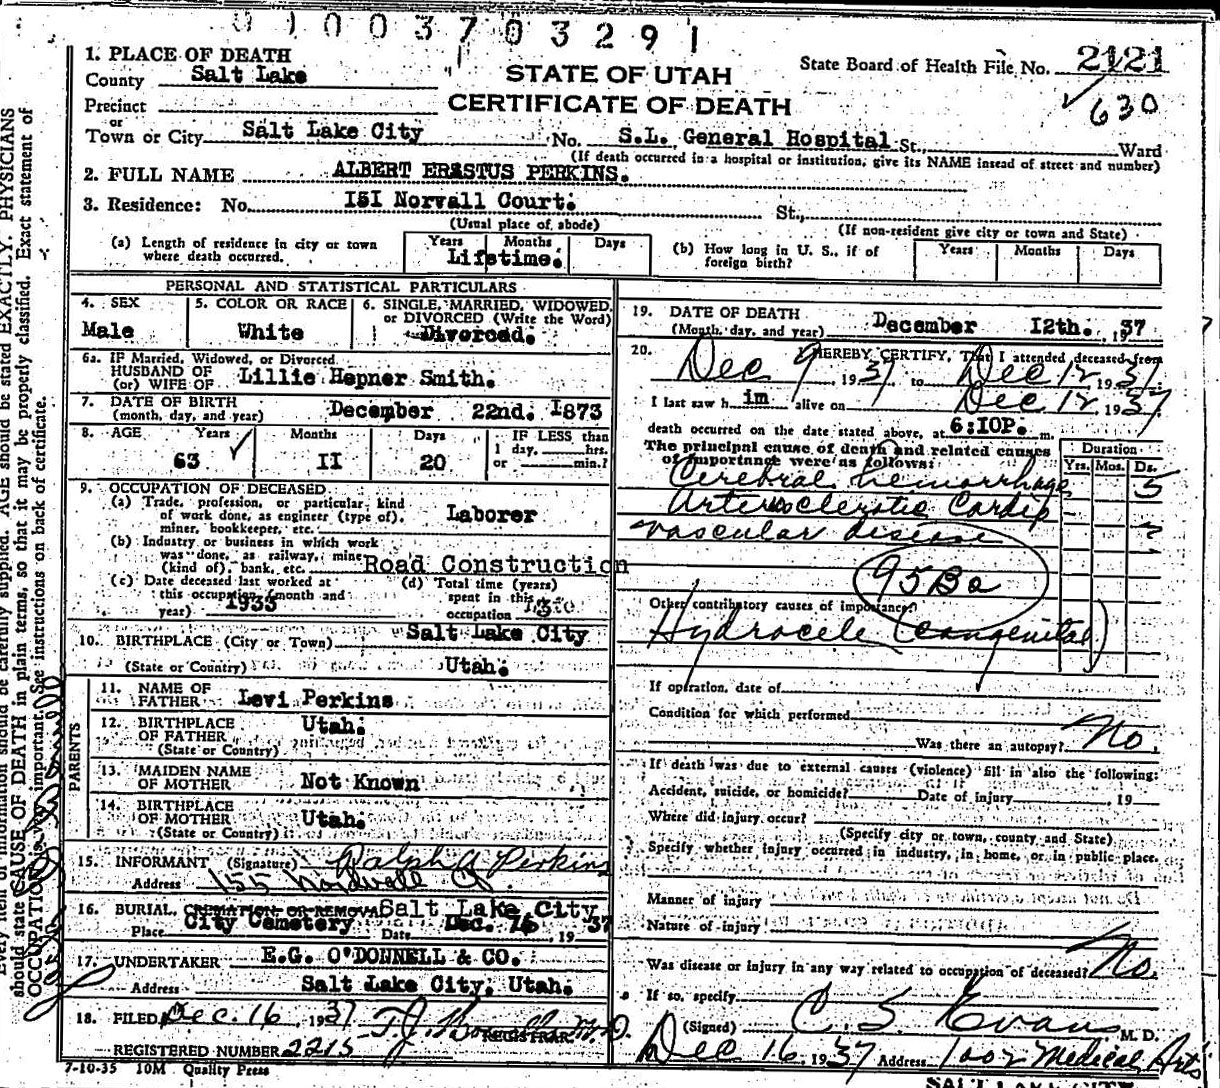 0 1 0 0 3 7 0 3 2 9 1
1. PLACE OF DEATH
County Salt Lake
STATE OF UTAH
State Board of Health File No. 2121
Precinct
CERTIFICATE OF DEATH
630
or
Town or City Salt Lake City No. S.L. General Hospital St., Ward
(If death occurred in a hospital or institution, give its NAME instead of street and number)
2. FULL NAME ALBERT ERASTUS PERKINS.
3. Residence: No. I5I Norvall Court. St.,
(Usual place of abode) (If non-resident give city or town and State)
(a) Length of residence in city or town where death occurred. Years Months Days Lifetime.
(b) How long in U. S., if of foreign birth? Years Months Days
PERSONAL AND STATISTICAL PARTICULARS
4. SEX Male
5. COLOR OR RACE White
6. SINGLE, MARRIED, WIDOWED, or DIVORCED (Write the Word) Divorced.
6a. IF Married, Widowed, or Divorced
HUSBAND OF
(or) WIFE OF Lillie Hepner Smith.
7. DATE OF BIRTH
(month, day, and year) December 22nd. I873
8. AGE Years Months Days IF LESS than
1 day, hrs.
63 II 20 or min.?
9. OCCUPATION OF DECEASED
(a) Trade, profession, or particular kind
of work done, as engineer (type of), Laborer
miner, bookkeeper, etc.
(b) Industry or business in which work
was done, as railway, mine
(kind of), bank, etc. Road Construction
(c) Date deceased last worked at
this occupation (month and
year) 1933
(d) Total time (years)
spent in this
occupation
10. BIRTHPLACE (City or Town) Salt Lake City
(State or Country) Utah.
PARENTS
11. NAME OF
FATHER Levi Perkins
12. BIRTHPLACE
OF FATHER Utah.
(State or Country)
13. MAIDEN NAME
OF MOTHER Not Known
14. BIRTHPLACE
OF MOTHER Utah.
(State or Country)
15. INFORMANT (Signature) Ralph A Perkins
Address 155 Nordvall Ct.
16. BURIAL, CREMATION OR REMOVAL Salt Lake City
Place City Cemetery Date Dec. 16, 1937
17. UNDERTAKER E.G. O'DONNELL & CO.
Address Salt Lake City, Utah.
18. FILED Dec. 16, 1937 REGISTRAR.
REGISTERED NUMBER 2215
7-10-35 10M Quality Press
19. DATE OF DEATH
(Month, day, and year) December I2th. , 1937
20. I HEREBY CERTIFY, That I attended deceased from
Dec 9, 1937 to Dec 12 1937
I last saw h im alive on Dec 12, 1937
death occurred on the date stated above, at 6:IOP. m.
The principal cause of death and related causes
of importance were as follows:
Duration
Yrs. Mos. Ds.
Cerebral hemorrhage 5
Arteriosclerotic Cardio ?
vascular disease ?
95Ba
Other contributory causes of importance:
Hydrocele (congenital)
If operation, date of
Condition for which performed
Was there an autopsy? No.
If death was due to external causes (violence) fill in also the following:
Accident, suicide, or homicide? Date of injury , 19
Where did injury occur?
(Specify city or town, county and State)
Specify whether injury occurred in industry, in home, or in public place.
Manner of injury
Nature of injury
Was disease or injury in any way related to occupation of deceased? No.
If so, specify
(Signed) C. S. Evans M. D.
Dec 16, 1937 Address 1002 Medical Arts
SALT LAKE CITY
should state CAUSE OF DEATH in plain terms, so that it may be properly classified. Exact statement of
OCCUPATION is very important. See instructions on back of certificate.